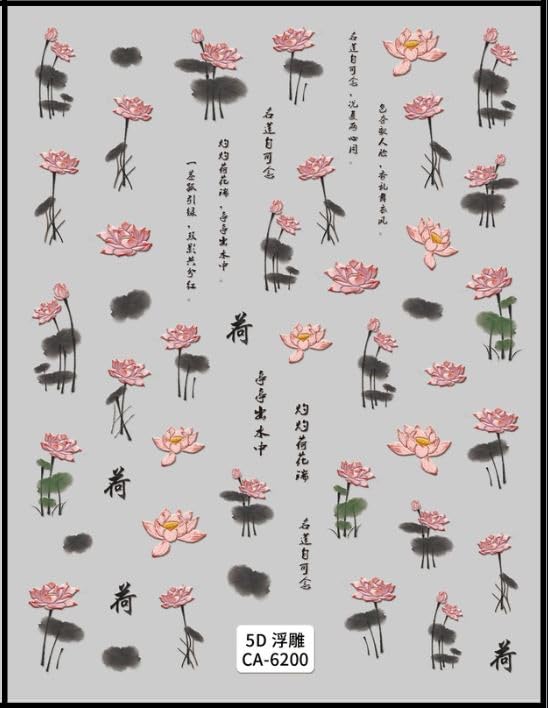 名莲自可念，况复两心同。
色夺歌人脸，香乱舞衣风。
名莲自可念
灼灼荷花瑞，亭亭出水中。
一茎孤引绿，双影共分红。
荷
亭亭出水中
灼灼荷花瑞
荷
名莲自可念
荷
荷
5D 浮雕
CA-6200